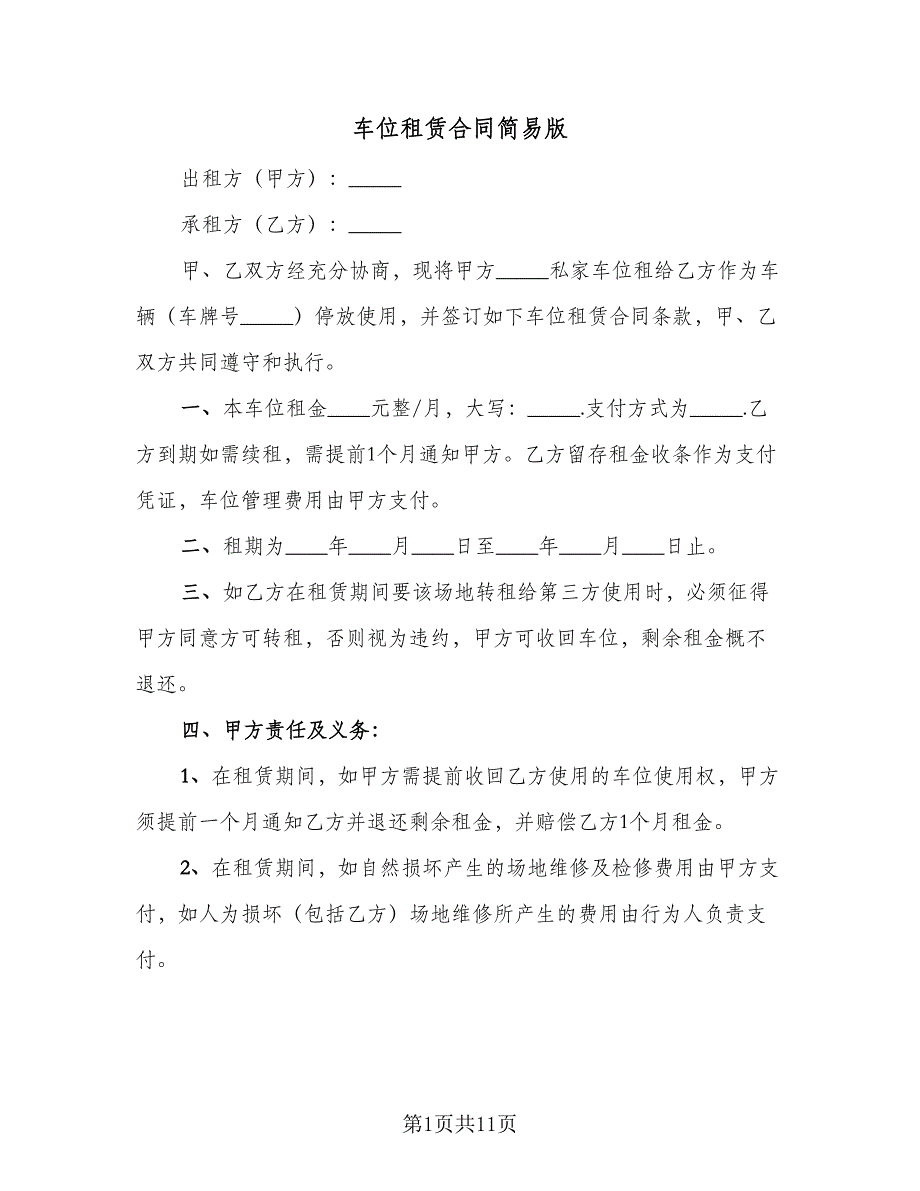 车位租赁合同简易版
出租方（甲方）：_____
承租方（乙方）：_____
甲、乙双方经充分协商，现将甲方_____私家车位租给乙方作为车
辆（车牌号_____）停放使用，并签订如下车位租赁合同条款，甲、乙
双方共同遵守和执行。
一、本车位租金____元整/月，大写：_____.支付方式为_____.乙
方到期如需续租，需提前1个月通知甲方。乙方留存租金收条作为支付
凭证，车位管理费用由甲方支付。
二、租期为____年____月____日至____年____月____日止。
三、如乙方在租赁期间要该场地转租给第三方使用时，必须征得
甲方同意方可转租，否则视为违约，甲方可收回车位，剩余租金概不
退还。
四、甲方责任及义务：
1、在租赁期间，如甲方需提前收回乙方使用的车位使用权，甲方
须提前一个月通知乙方并退还剩余租金，并赔偿乙方1个月租金。
2、在租赁期间，如自然损坏产生的场地维修及检修费用由甲方支
付，如人为损坏（包括乙方）场地维修所产生的费用由行为人负责支
付。
第1页共11页